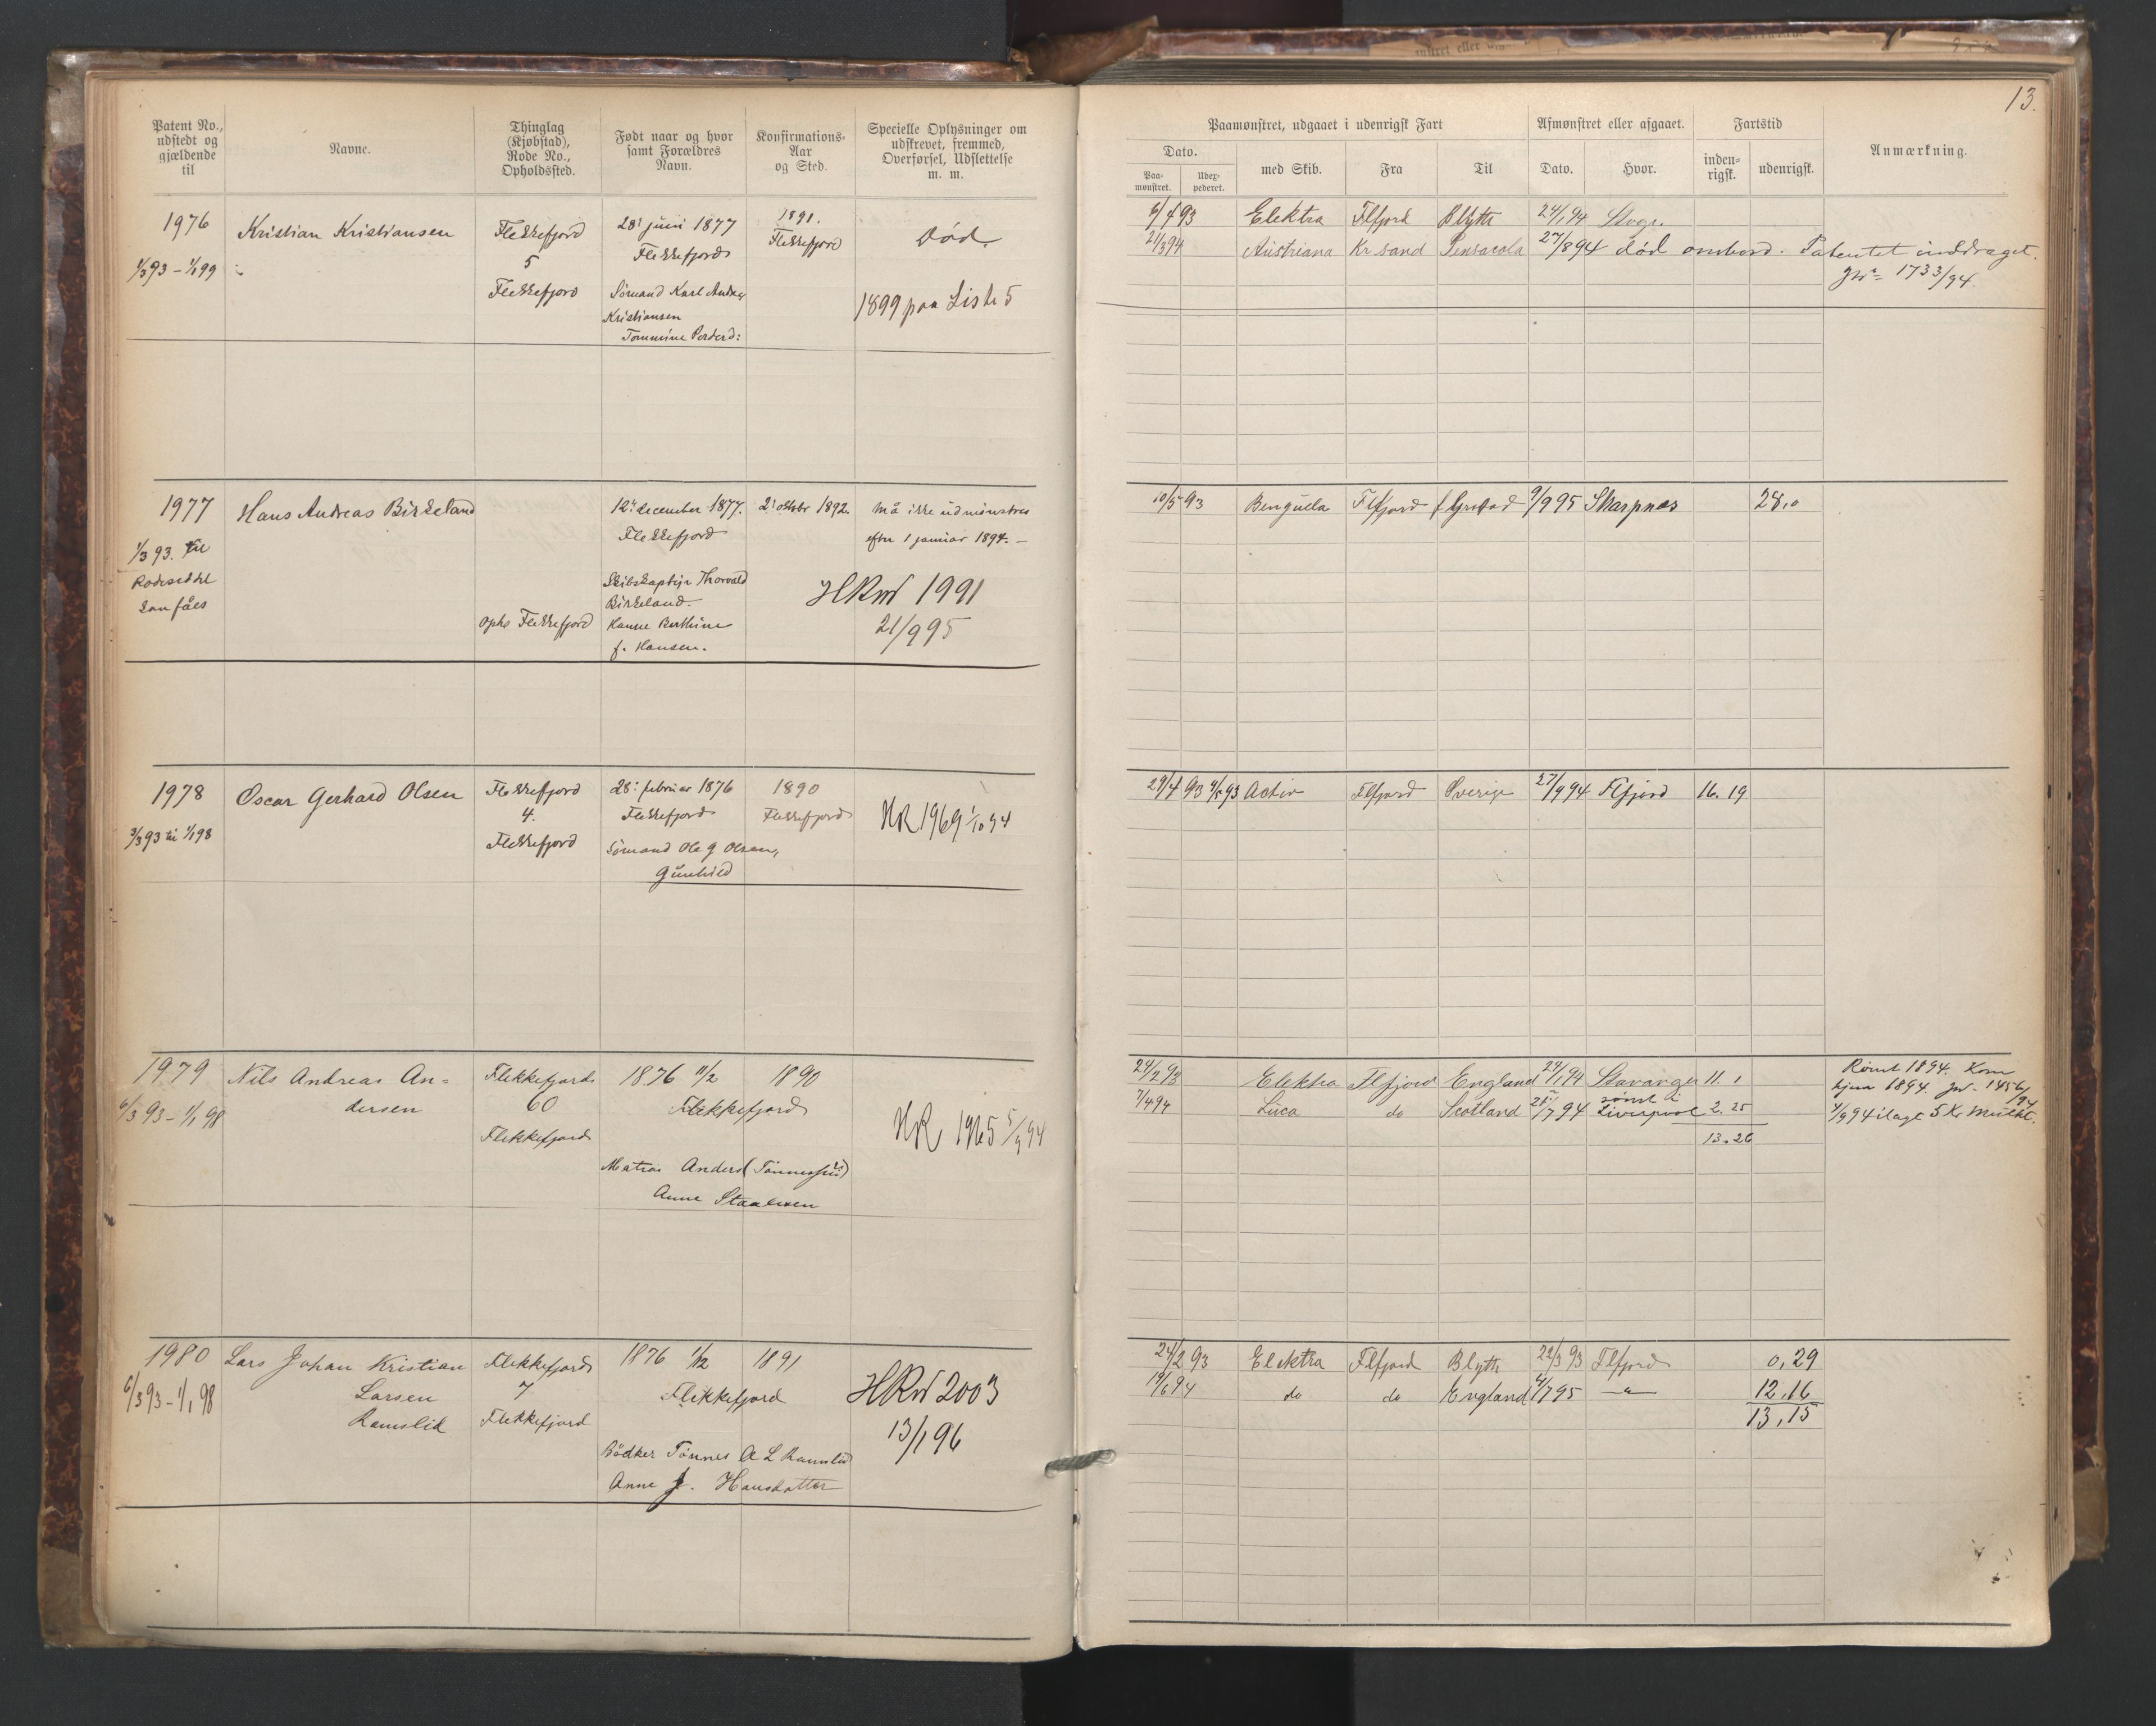 13.
Patent No., udstedt og gjældende til
Navne.
Thinglag (Kjøbstad), Rode No., Opholdssted.
Født naar og hvor samt Forældres Navn.
Konfirmations-Aar og Sted.
Specielle Oplysninger om udskrevet, fremmed, Overførsel, Udslettelse m. m.
Paamønstret, udgaaet i udenrigsk Fart
Dato.
Paa-mønstret.
Udex-pederet.
med Skib.
Fra
Til
Afmønstret eller afgaaet.
Dato.
Hvor.
Fartstid
inden-rigsk.
udenrigsk.
Anmærkning.
1976
1/3 93 – 1/1 99
Kristian Kristiansen
Flekkefjord
5
Flekkefjord
28' juni 1877
Flekkefjord
Sømand Karl Andreas
Kristiansen
Tommine Pedersd:
1891.
Flekkefjord
Død.
1899 paa Liste 5
6/4 93 Elektra Flfjord Blyth 24/1 94 Stvgr.
21/3 94 Austriana Kr.sand Pensacola 27/8 94 død ombord. Patentet inddraget.
Jnr 1733/94.
1977
1/3 93. til
Rodeseddel
kan fåes
Hans Andreas Birkeland
opho Flekkefjord
12' december 1877.
Flekkefjord
Skibskaptejn Thorvald
Birkeland.
Hanne Berthine
f. Hansen.
2' oktbr 1892.
Må ikke udmønstres
efter 1 januar 1894. –
HRw 1991
21/9 95
10/5 93 Benguela Flfjord 9/9 95 Skarpnes 28,0
1978
3/3 93 til 1/1 98
Oscar Gerhard Olsen
Flekkefjord
4.
Flekkefjord
28' februar 1876
Flekkefjord
Sømand Ole G Olsen,
Gunhild
1890
Flekkefjord
NR 1969 1/10 94
29/4 93 4/5 93 Activ Flfjord Sverige 27/9 94 Flfjord 16. 19
1979
6/3 93 – 1/1 98
Nils Andreas An=
dersen
Flekkefjord
60
Flekkefjord
1876 11/2 1890
Flekkefjord
Matros Anders (Tønnessen)
Anne Staalesen
NR 1965 5/9 94
24/2 93 Elektra Flfjord England 24/1 94 Stavanger 11. 1
7/4 94 Luca do Scotland 28/7 94 rømt i Liverpool 2. 25
13. 26
Rømt 1894. Kom
hjem 1894. jnr. 1456/94
4/9 94 ilagt 5 Kr Mulkt.
1980
6/3 93 – 1/1 98
Lars Johan Kristian
Larsen
Ramslid
Flekkefjord
7
Flekkefjord
1876 1/12 1891
Flekkefjord
Bødker Tønnes A L Ramslid
Anne J. Hansdatter
HRw 2003
13/1 96
24/2 93 Elektra Flfjord Blyth 22/3 93 Flfjord 0, 29
19/6 94 do do England 4/7 95 —"— 12, 16
13, 15